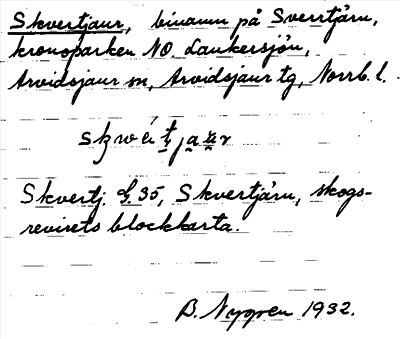 Skvertjaur, binamn på Sverrtjärn,
kronoparken NO. Laukersjön,
Arvidsjaur sn, Arvidsjaur tg, Norrb. l.
Skvertj. L. 35, Skvertjärn, skogs-
revirets blockkarta.
B. Nygren 1932.